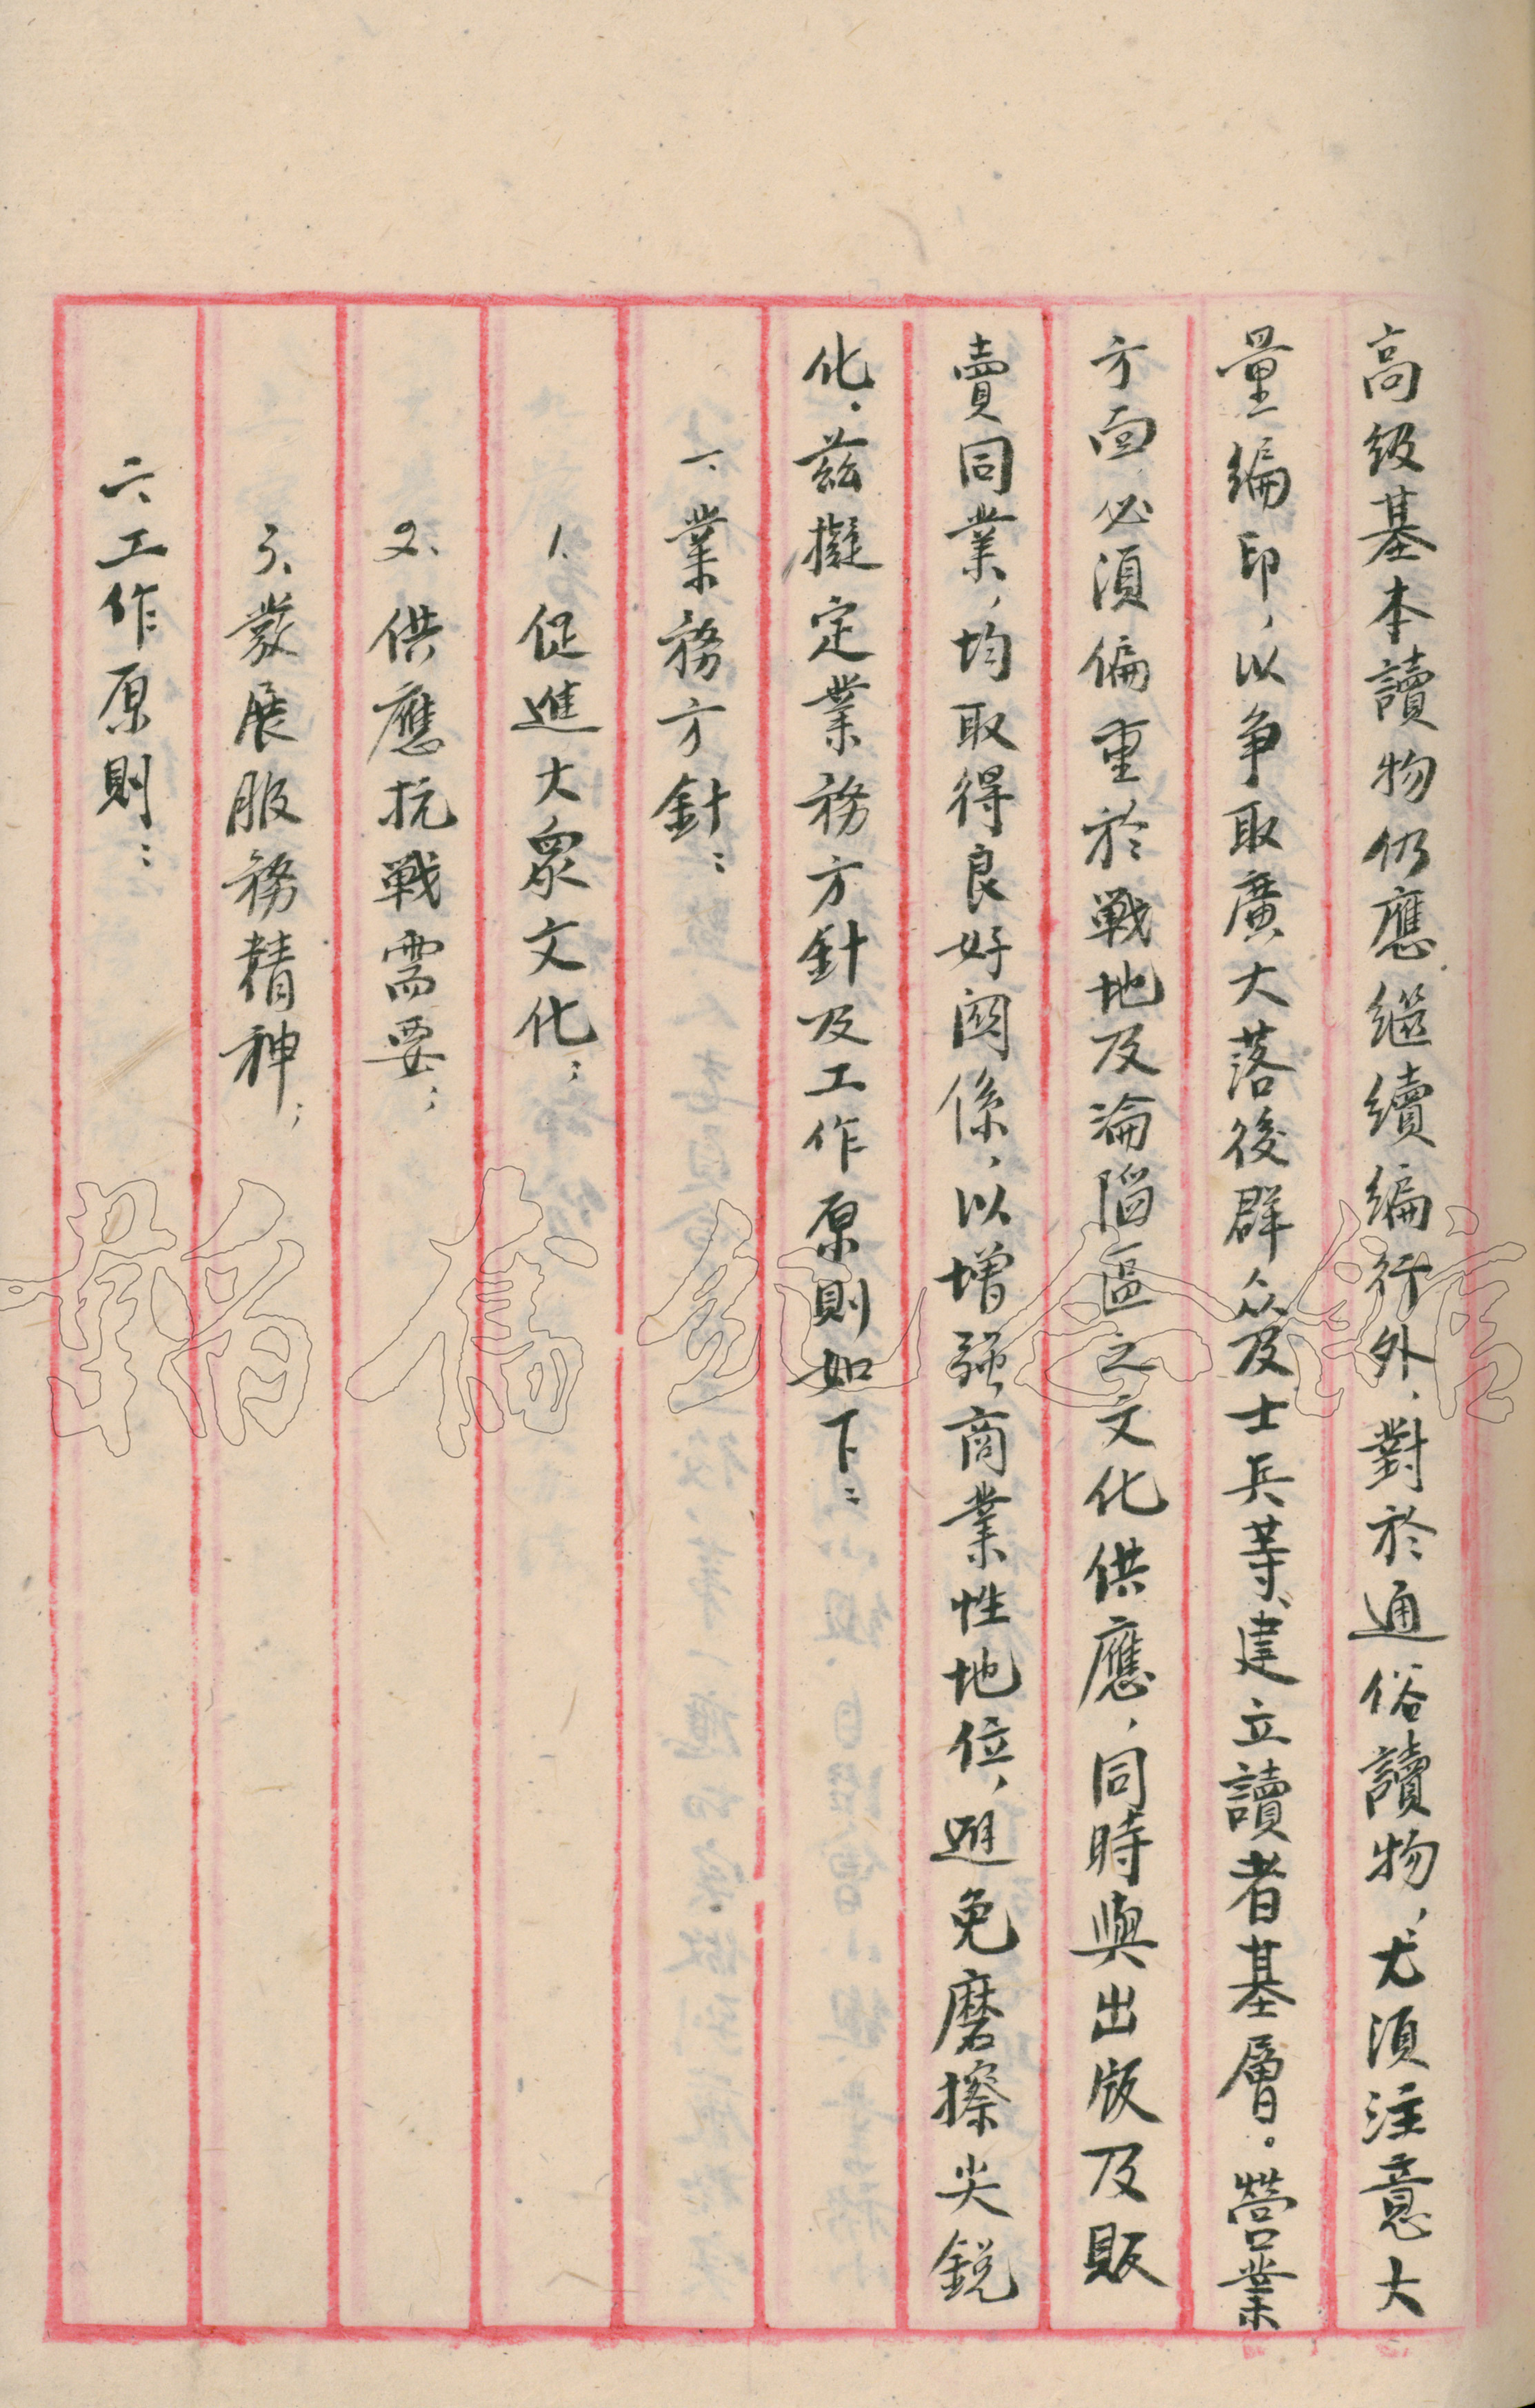 高級基本讀物仍應繼續編行外，對於通俗讀物，尤須注意大
量編印，以爭取廣大落後群众及士兵等，建立讀者基層。營業
方面必須偏重於戰地及淪陷區之文化供應，同時與出版及販
賣同業，均取得良好關係，以增强商業性地位，避免磨擦尖銳
化。茲擬定業務方針及工作原則如下：
一、業務方針：
1、促進大眾文化；
2、供應抗戰需要；
3、發展服務精神；
二、工作原則：
韜奮紀念館